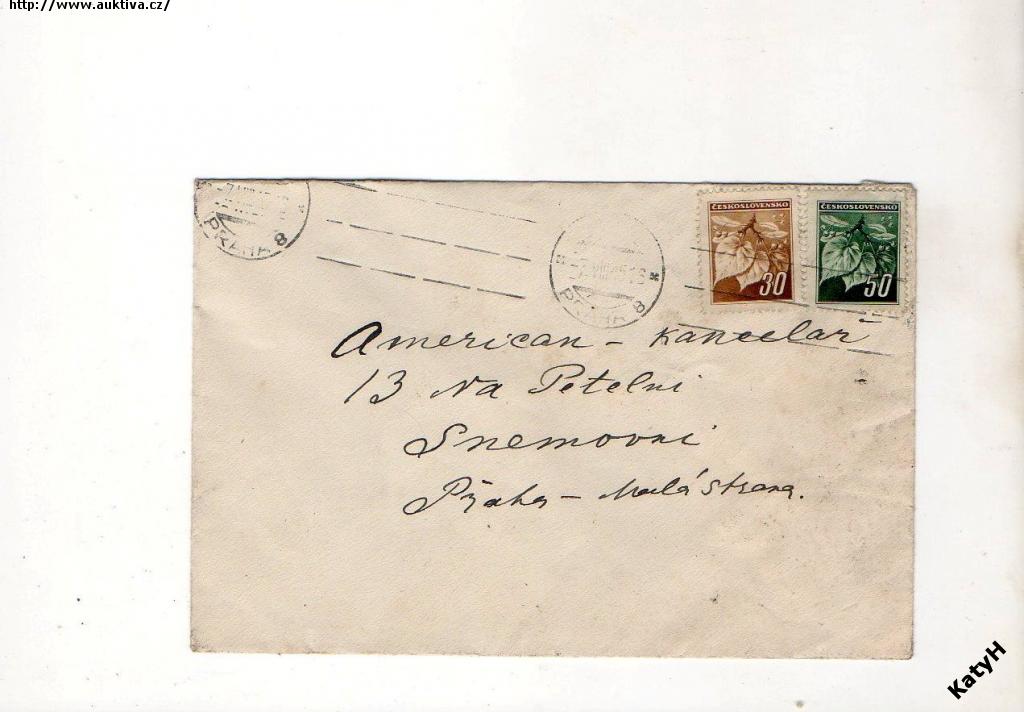 http://www.auktiva.cz/
PRAHA 8
PRAHA 8
ČESKOSLOVENSKO
30
ČESKOSLOVENSKO
50
American - kancelař
13 Na Petelni
Snemovni
Praha - Malá strana.
KatyH